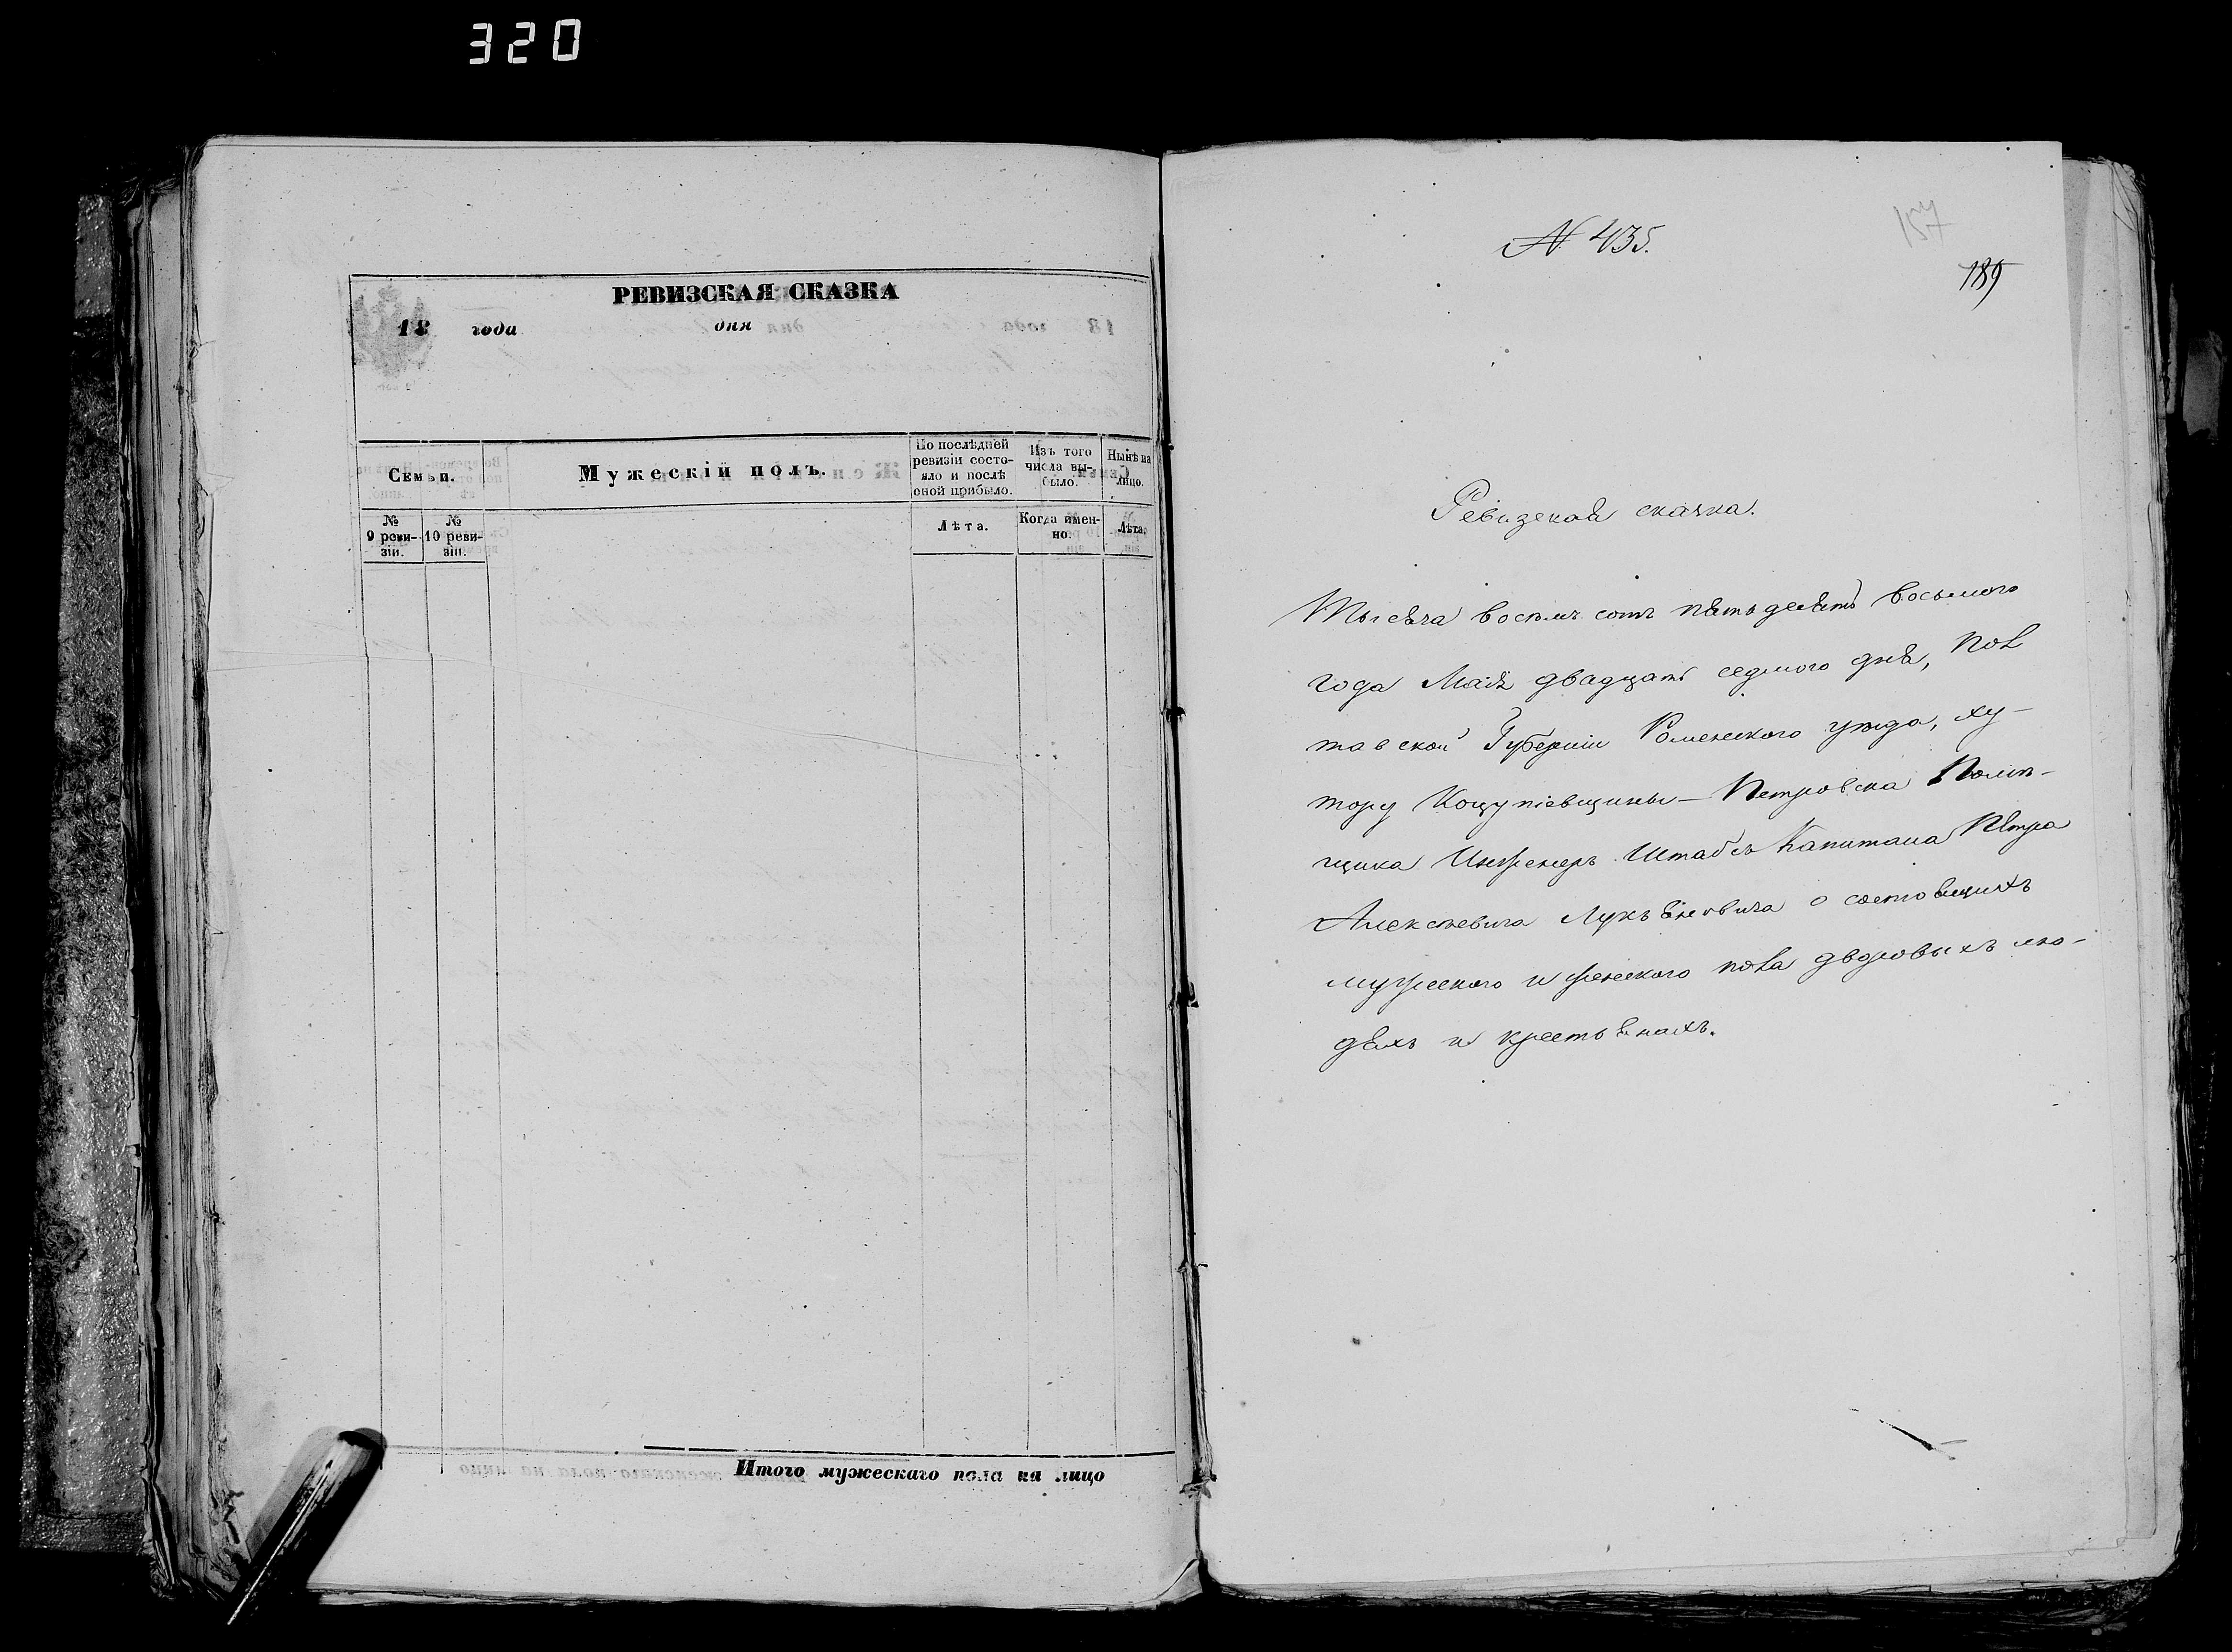 320
РЕВИЗСКАЯ СКАЗКА
18 года дня
Семьи.
Мужескій полъ.
По послѣдней ревизіи состояло и послѣ оной прибыло.
Изъ того числа выбыло.
Нынѣ на лицо.
№ 9 ревизіи.
№ 10 ревизіи.
Лѣта.
Когда именно.
Лѣта.
Итого мужескаго пола на лицо
№ 435.
157
189
Ревизская сказка.
Тысяча восемь сотъ пятьдесятъ восьмого
года Мая двадцать седмого дня, Пол
тавской Губерніи Роменского уѣзда, ху-
тору Коцупіевщины-Петровска Помѣ-
щика Инженеръ Штабсъ Капитана Петра
Алексѣевича Лукьяновича о состоящихъ
мужеского и женского пола дворовыхъ лю-
дяхъ и крестьянахъ.